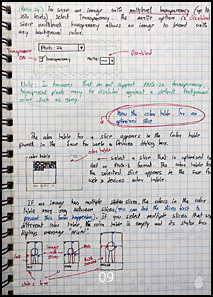 PNG-24 to save an image with multilevel transparency (up to
256 levels) select Transparency. The matte option is disabled
since multilevel transparency allows an image to blend with
any background color.
PNG-24
Disabled
Transparency
ON
Transparency
Matte:
Note: In browsers that do not support PNG-24 transparency,
transparent pixels may be displayed against a default background
color, such as grey.
View the color table for an
optimized slice
The color table for a slice appears in the Color table
panel in the Save for web & Devices dialog box.
color table
color table
Select a slice that is optimized in
GIF or PNG-8 format. The color table for
the selected slice appears in the Save for
web & devices color table.
If an image has multiple slices, the colors in the color
table may vary between slices (you can link the slices first to
prevent this from happening). If you select multiple slices that use
different color table, the color table is empty and its status bar
displays message "Mixed".
image
slice 2
09